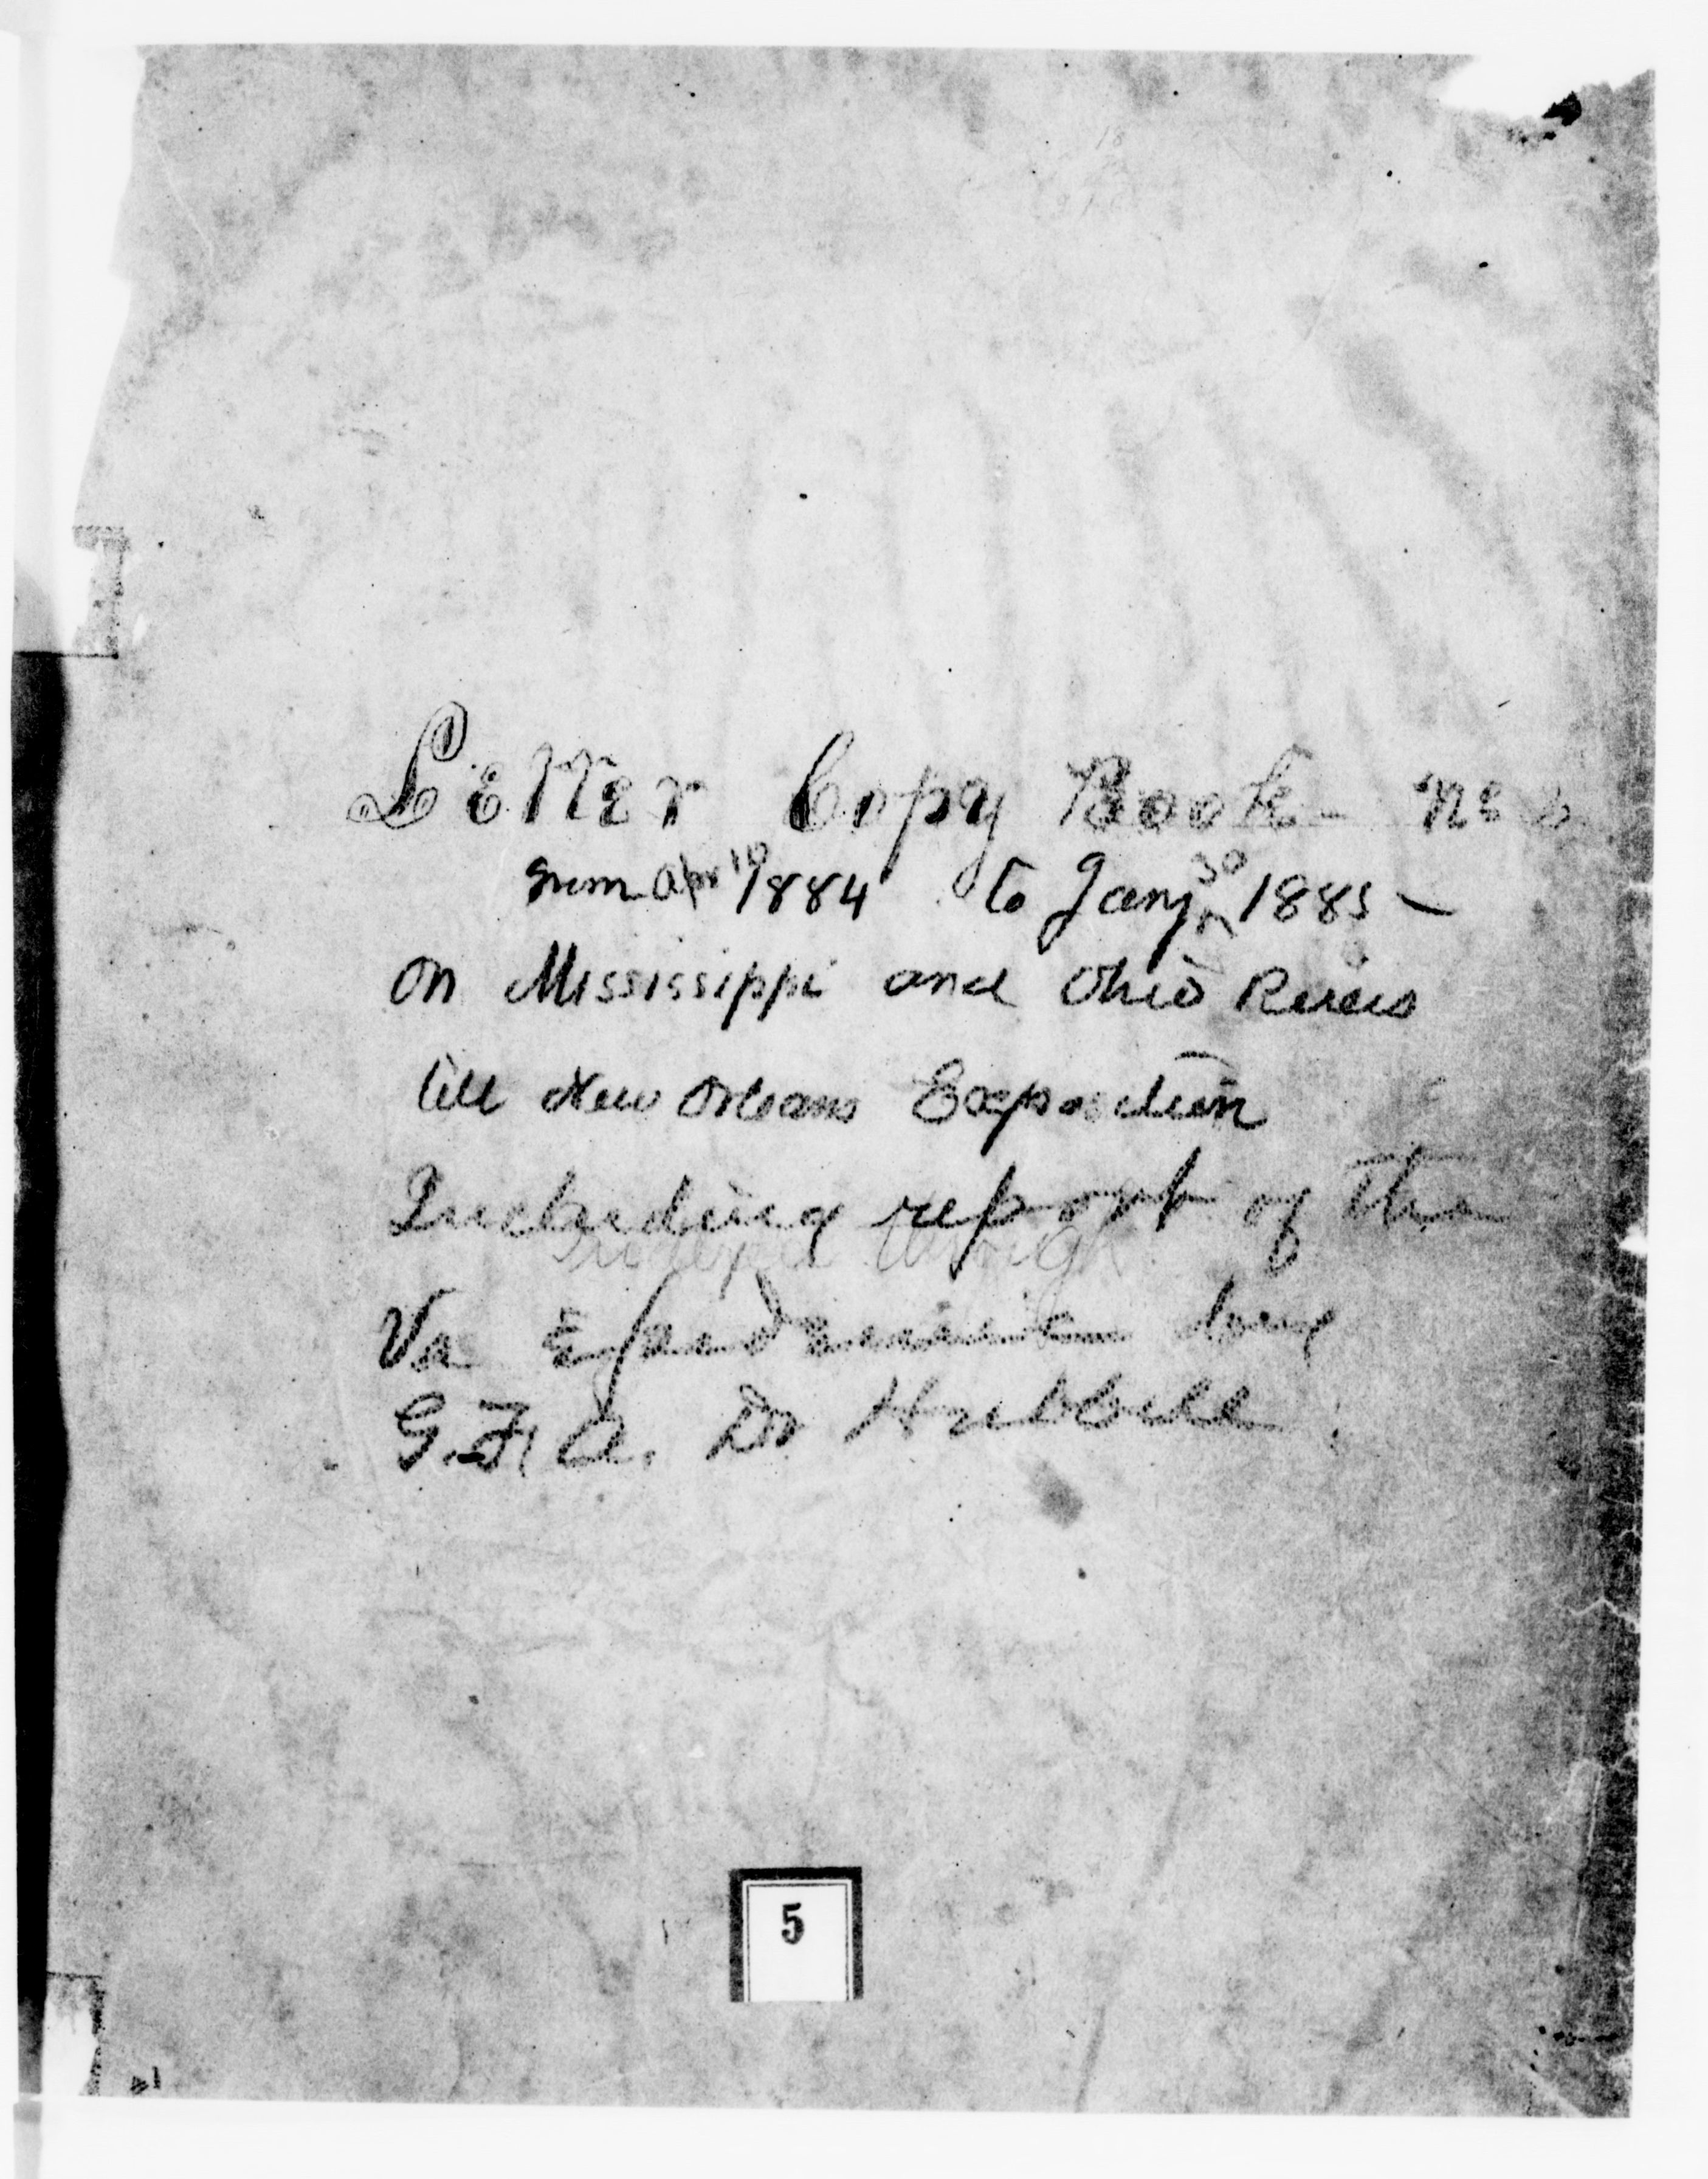 Letter Copy Book - No
from Apr 10 1884 to Jany 30 1885 -
on Mississippi and Ohio Rivers
till New Orleans Exposition
Including report of the
Va Epidemic by
G.F.A. Dr Hubbell
5